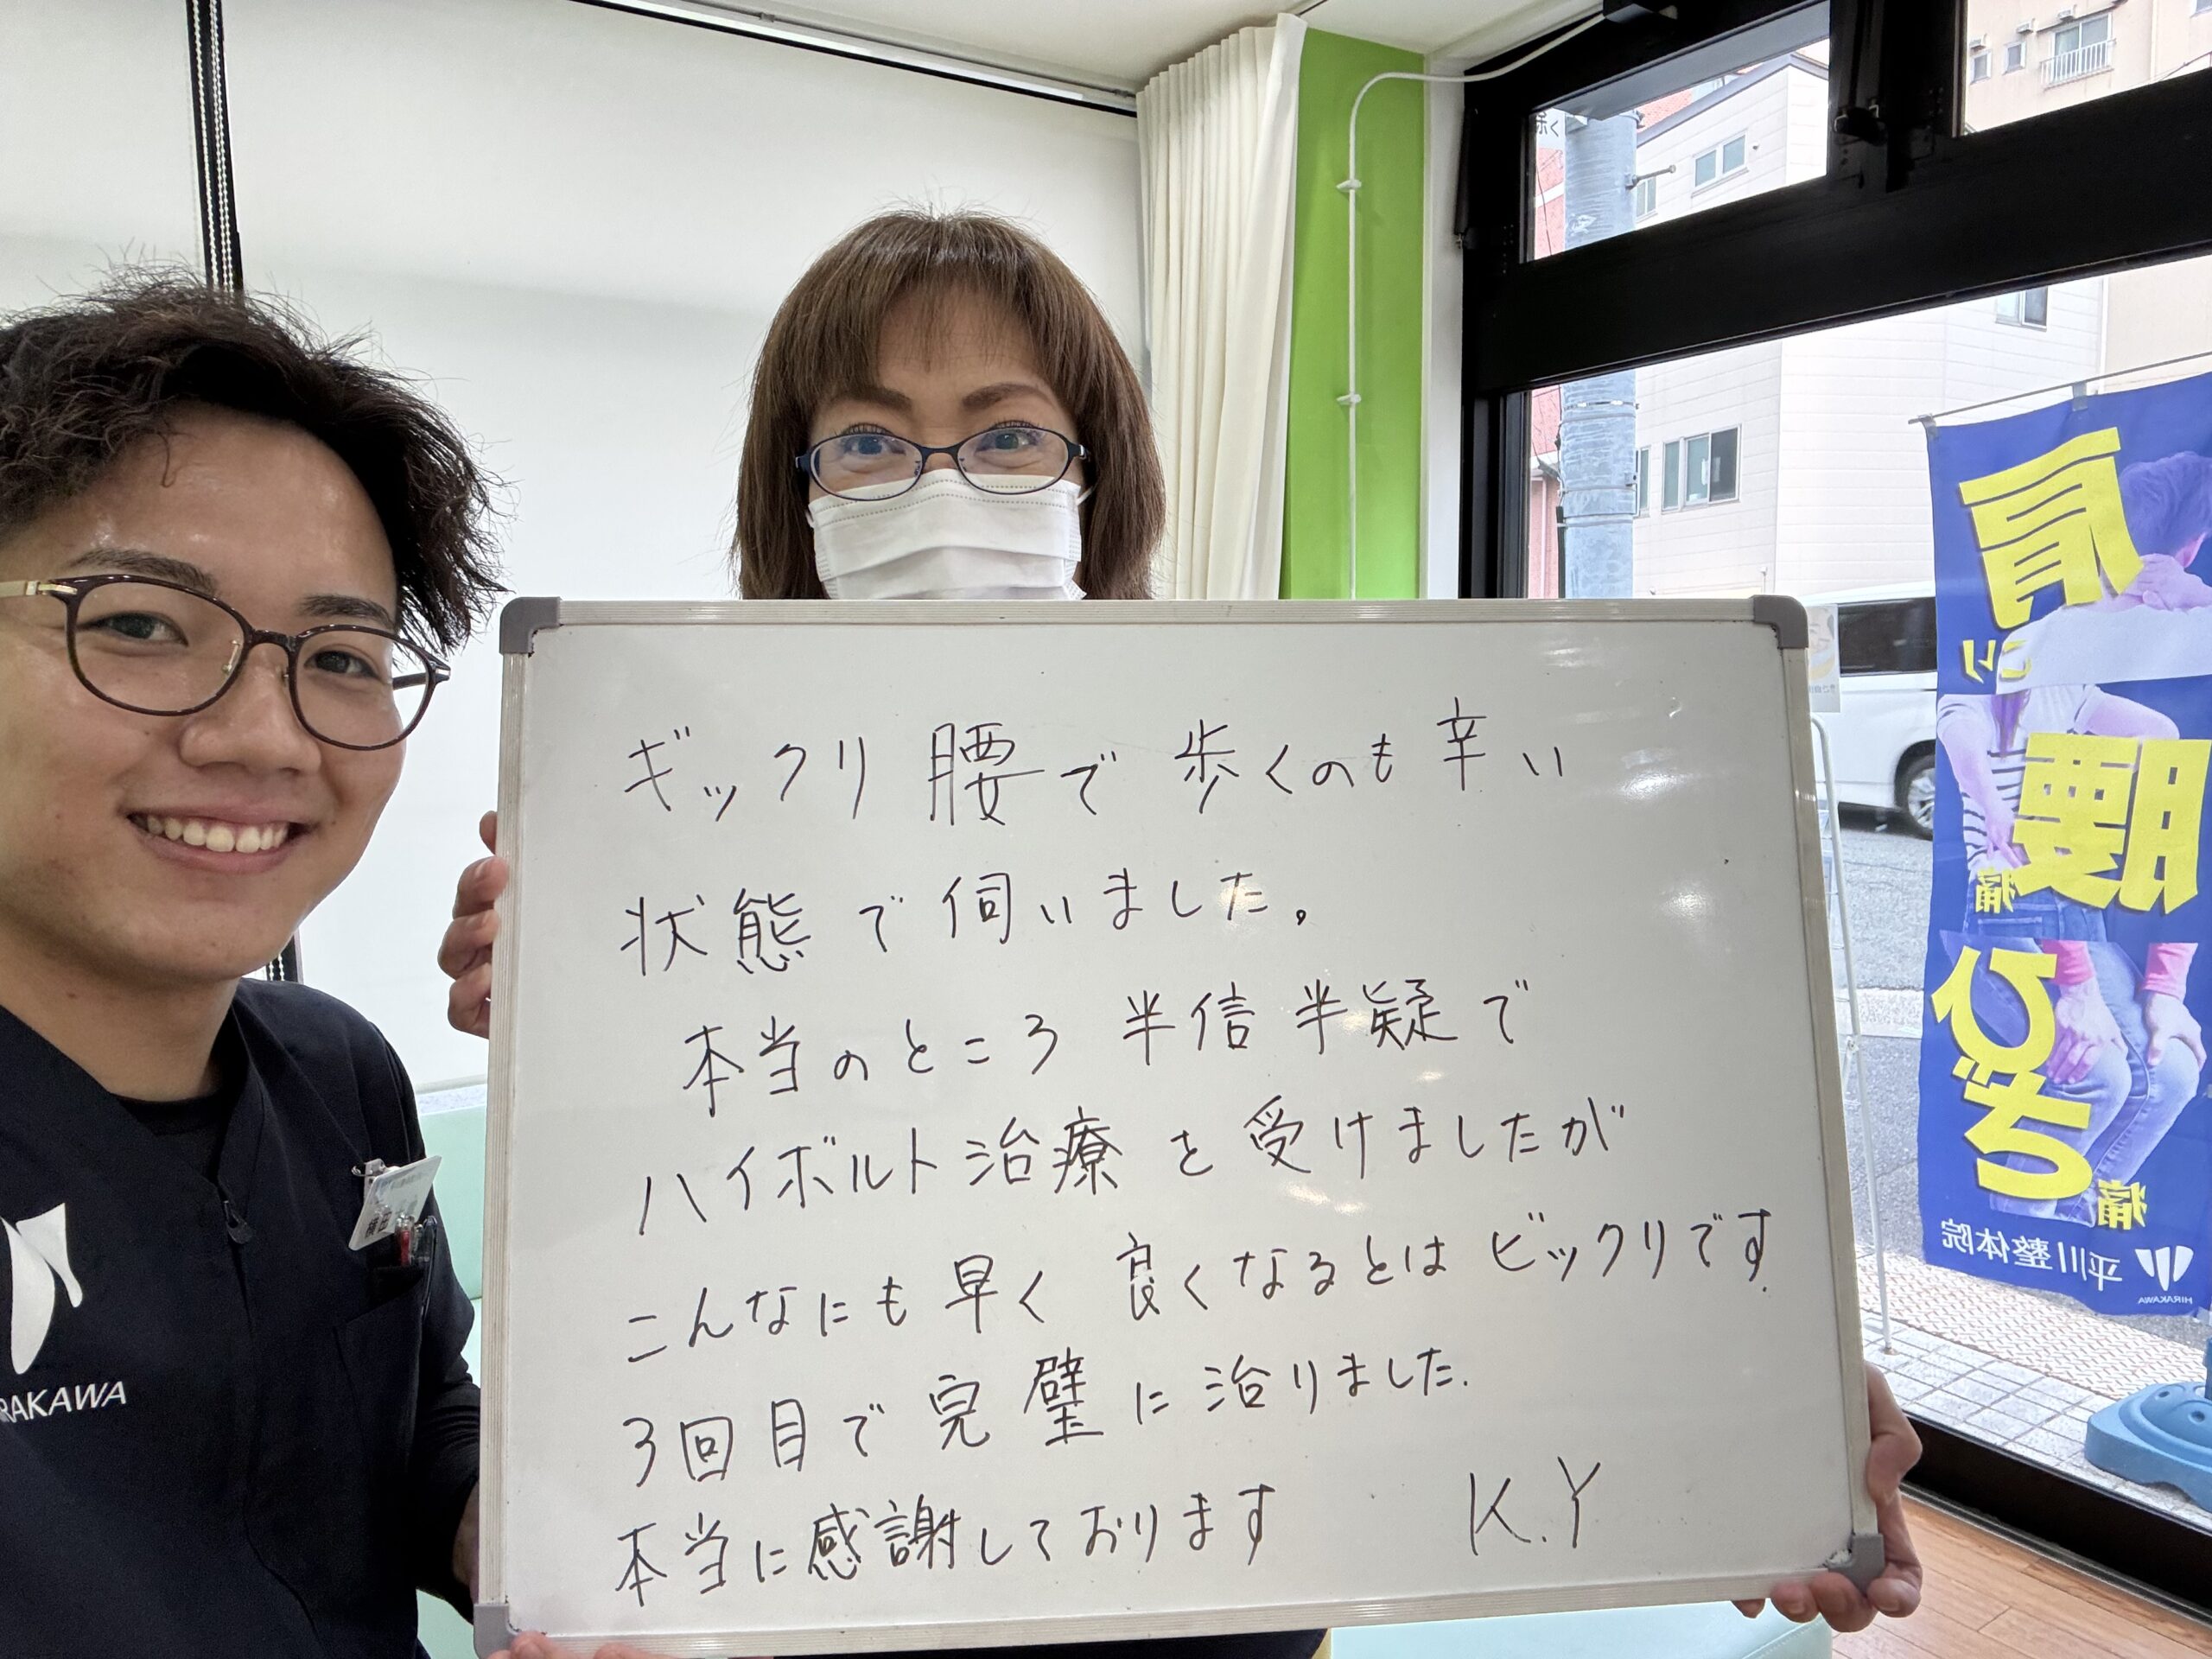 ギックリ腰で歩くのも辛い
状態で伺いました。
本当のところ半信半疑で
ハイボルト治療を受けましたが
こんなにも早く良くなるとはビックリです.
3回目で完璧に治りました.
本当に感謝しております K.Y
RAKAWA
肩こり
腰痛
ひざ痛
平川整体院
HIRAKAWA